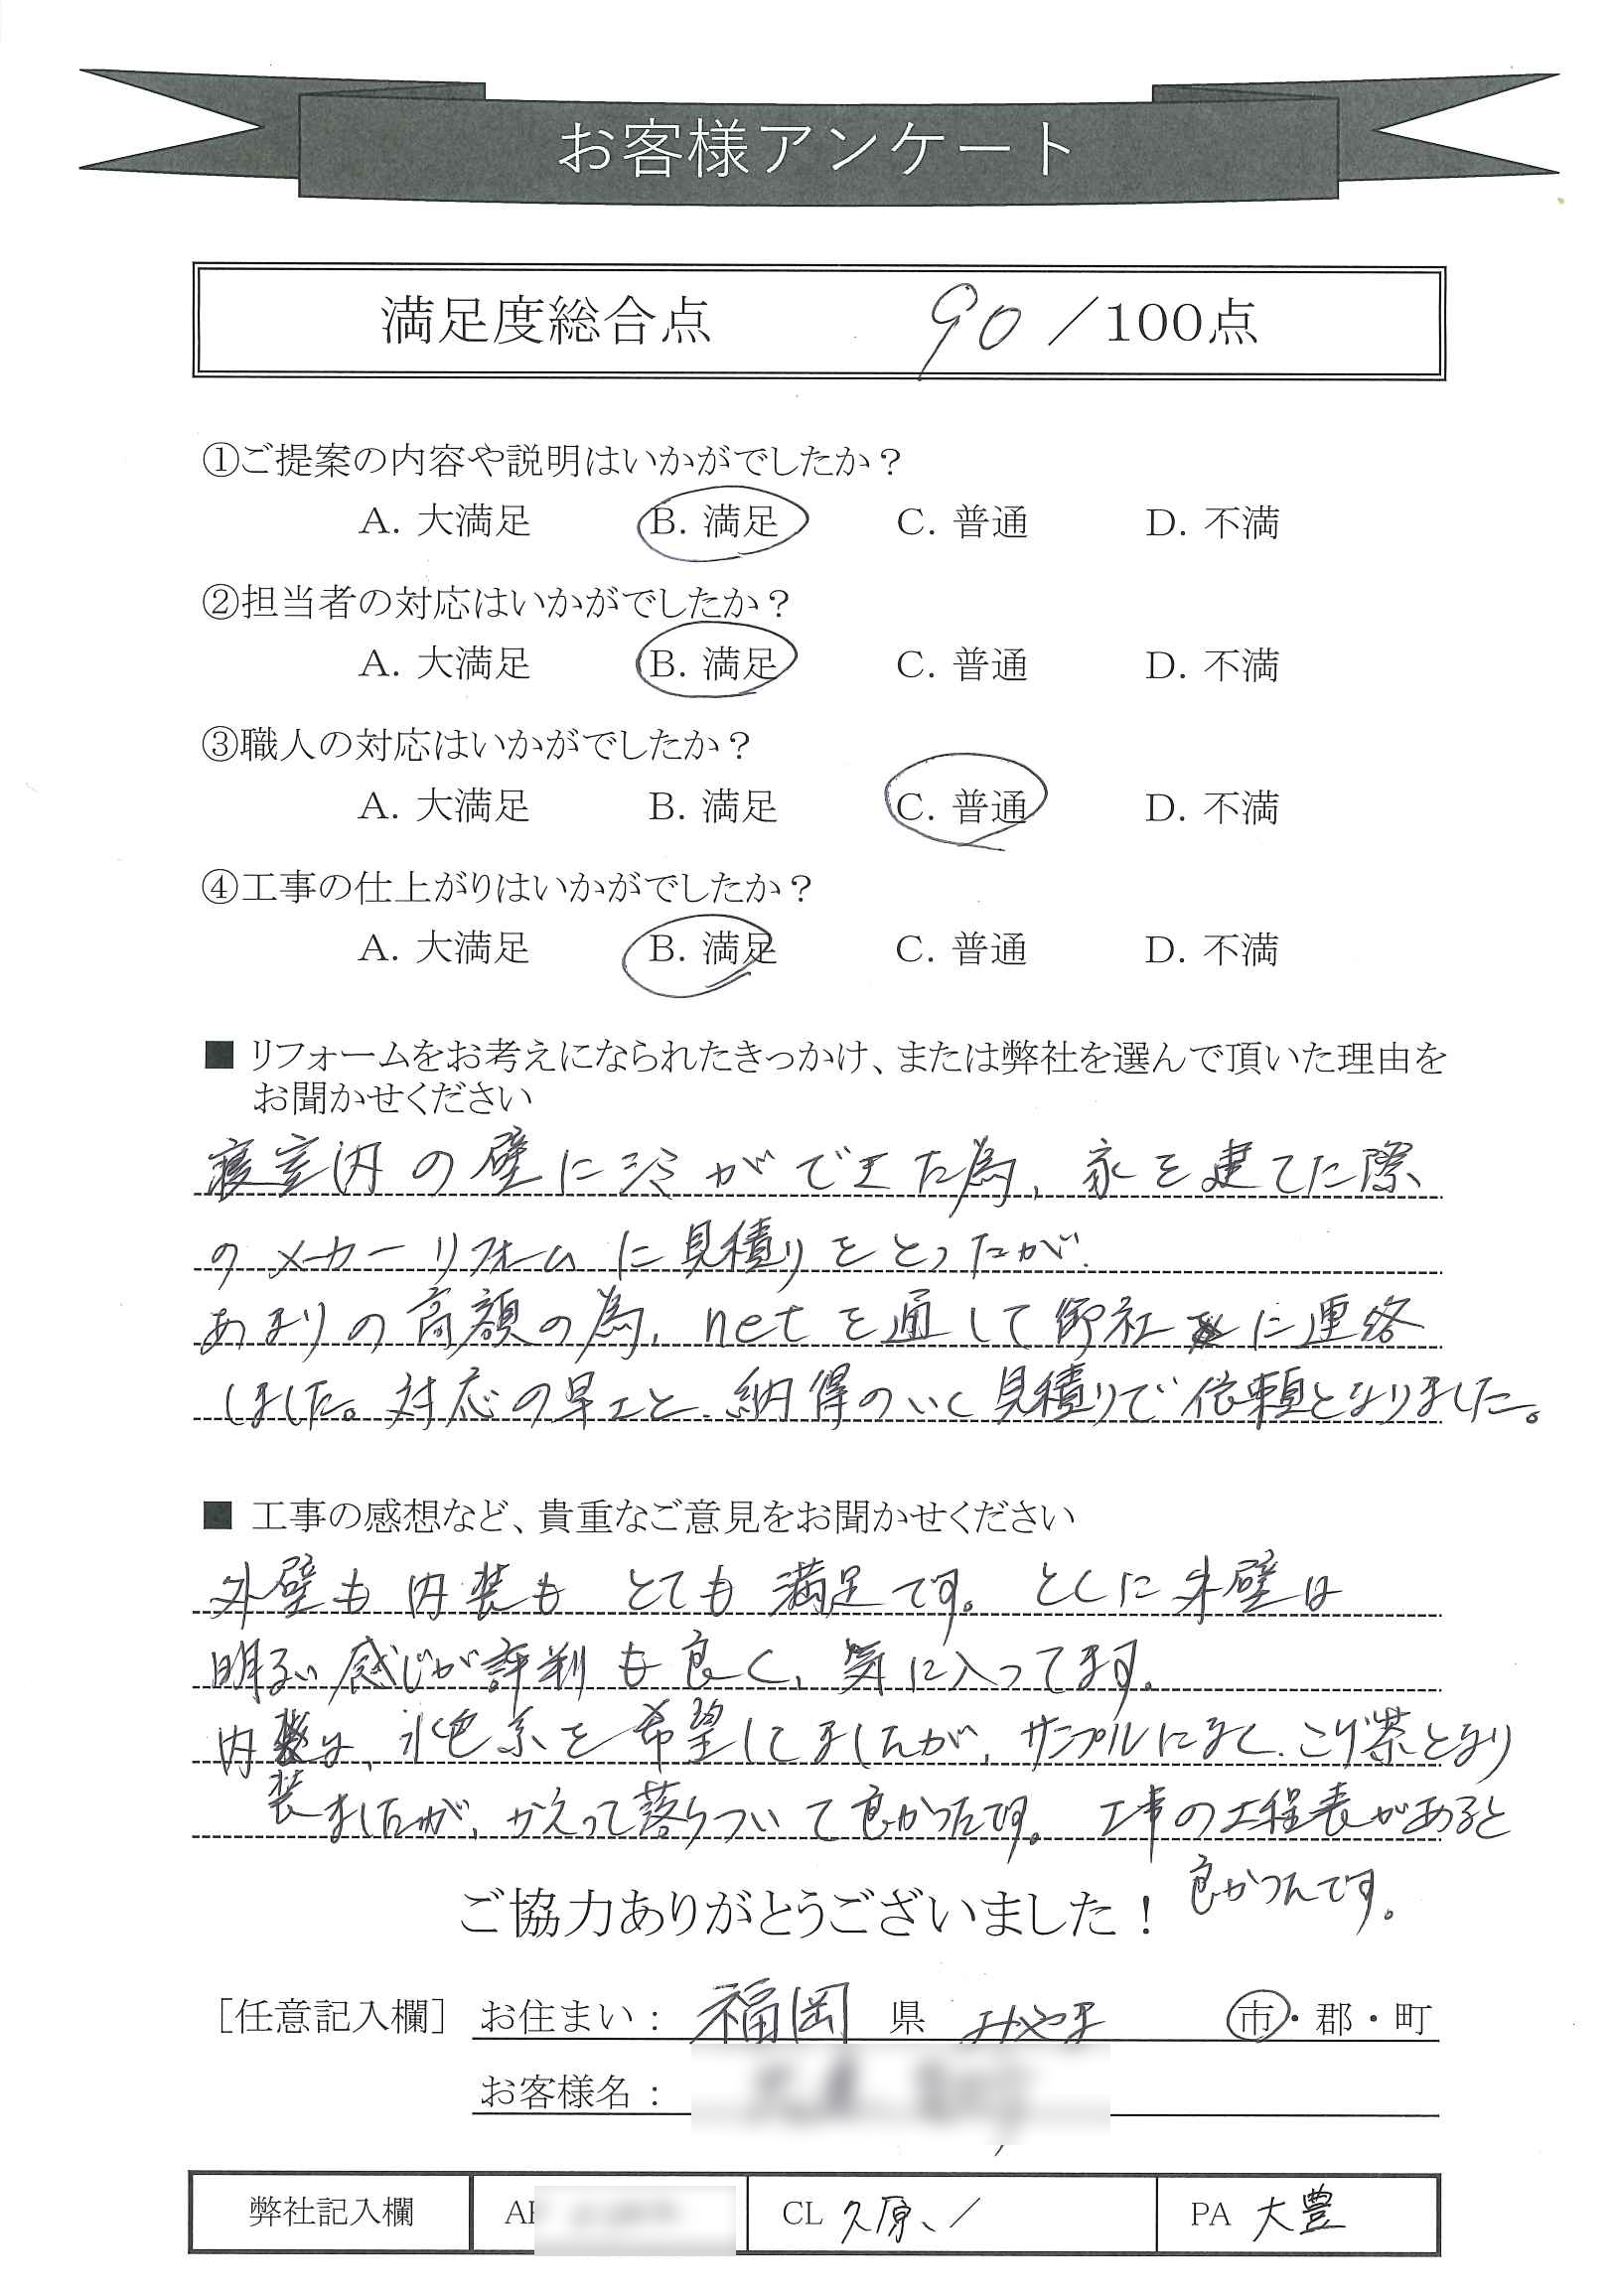 お客様アンケート
満足度総合点 90／100点
①ご提案の内容や説明はいかがでしたか？
A. 大満足 B. 満足 C. 普通 D. 不満
②担当者の対応はいかがでしたか？
A. 大満足 B. 満足 C. 普通 D. 不満
③職人の対応はいかがでしたか？
A. 大満足 B. 満足 C. 普通 D. 不満
④工事の仕上がりはいかがでしたか？
A. 大満足 B. 満足 C. 普通 D. 不満
■ リフォームをお考えになられたきっかけ、または弊社を選んで頂いた理由を
お聞かせください
寝室内の壁にシミができた為、家を建てた際
のメーカーリフォームに見積りをとったが、
あまりの高額の為、netを通して御社に連絡
しました。対応の早さと、納得のいく見積りで依頼となりました。
■ 工事の感想など、貴重なご意見をお聞かせください
外壁も内装もとても満足です。とくに外壁は
明るい感じが評判も良く、気に入ってます。
内装は、水色系を希望してましたが、サンプルになく、こげ茶となり
ましたが、かえって落ちついて良かったです。工事の工程表があると
良かったです。
ご協力ありがとうございました！
［任意記入欄］ お住まい： 福岡 県 みやま 市・郡・町
お客様名：
弊社記入欄 CL 久原、 PA 大豊